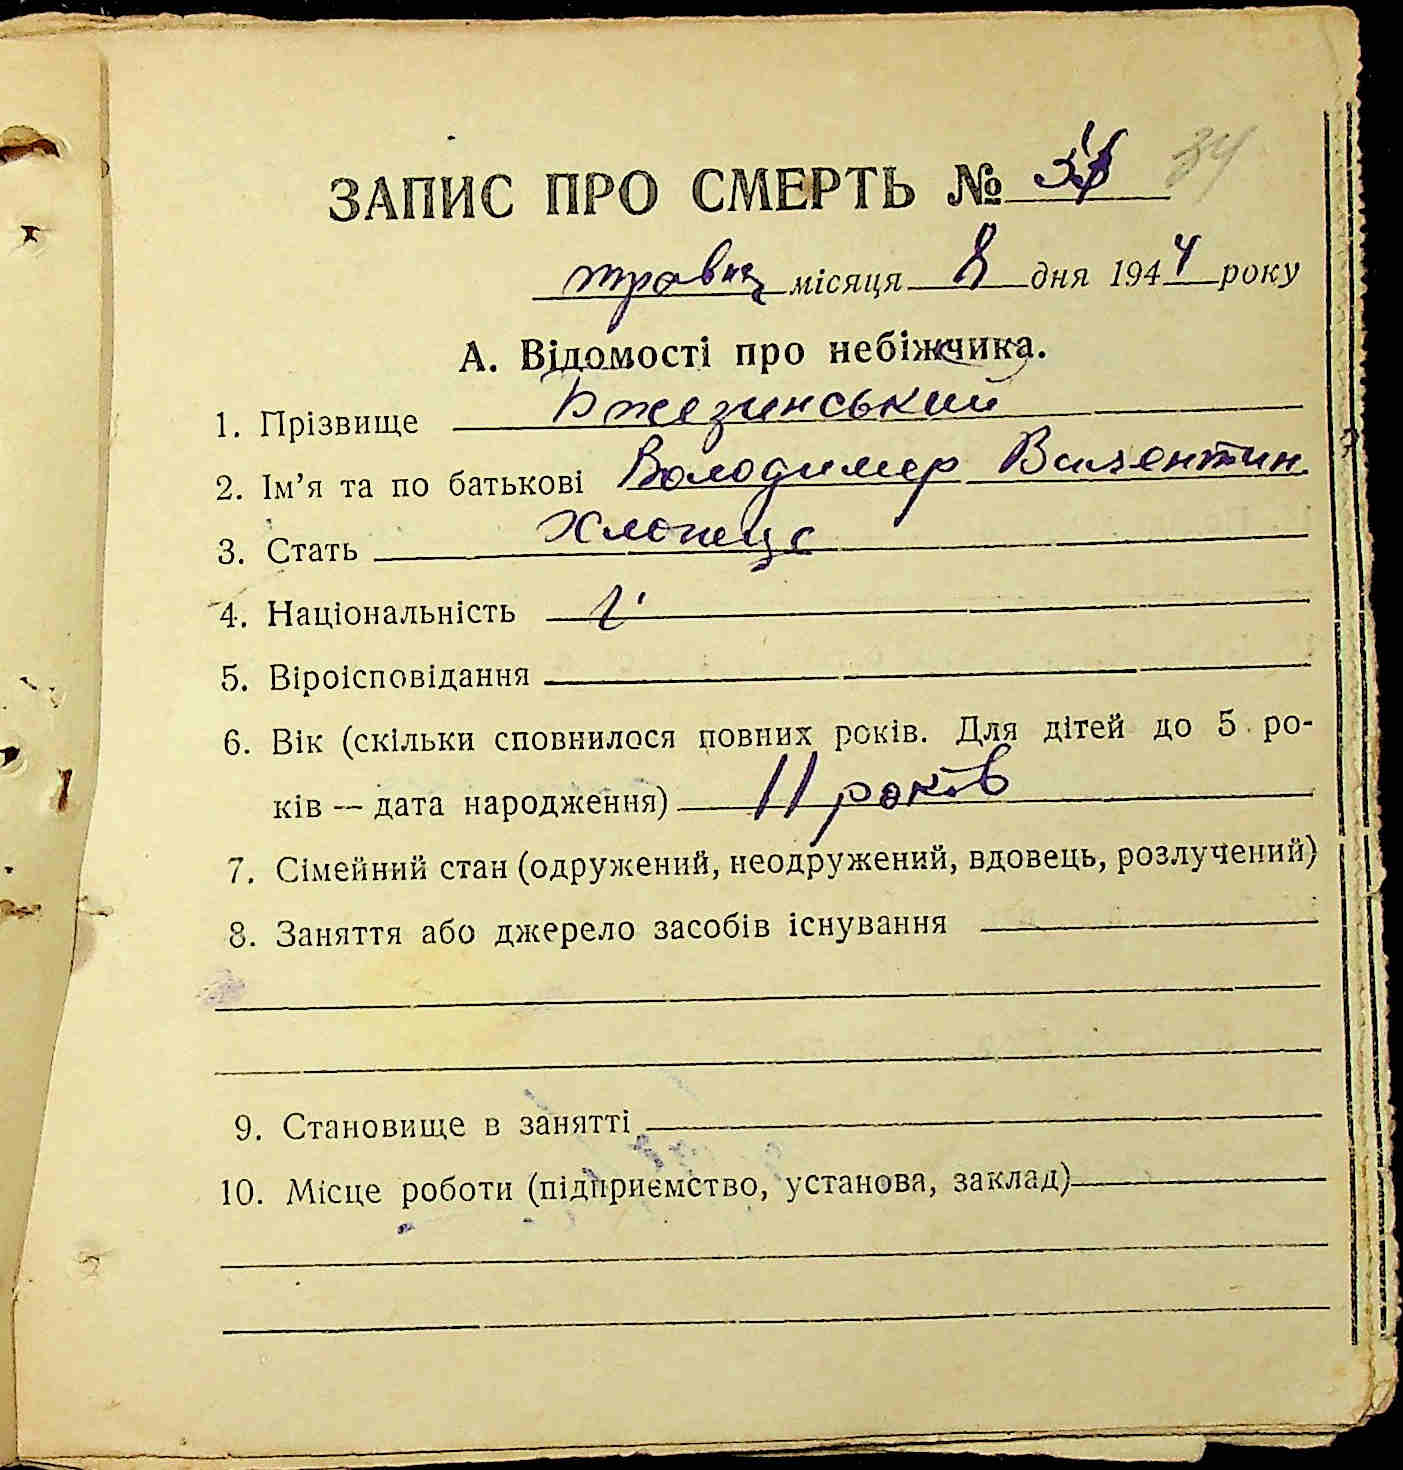 34
ЗАПИС ПРО СМЕРТЬ №
травня місяця 8 дня 1944 року
А. Відомості про небіжчика.
1. Прізвище Бжезинський
2. Ім'я та по батькові Володимер Валентин
3. Стать Хлопець
4. Національність
5. Віроісповідання
6. Вік (скільки сповнилося повних років. Для дітей до 5 ро-
ків — дата народження) 11 років
7. Сімейний стан (одружений, неодружений, вдовець, розлучений)
8. Заняття або джерело засобів існування
9. Становище в занятті
10. Місце роботи (підприємство, установа, заклад)